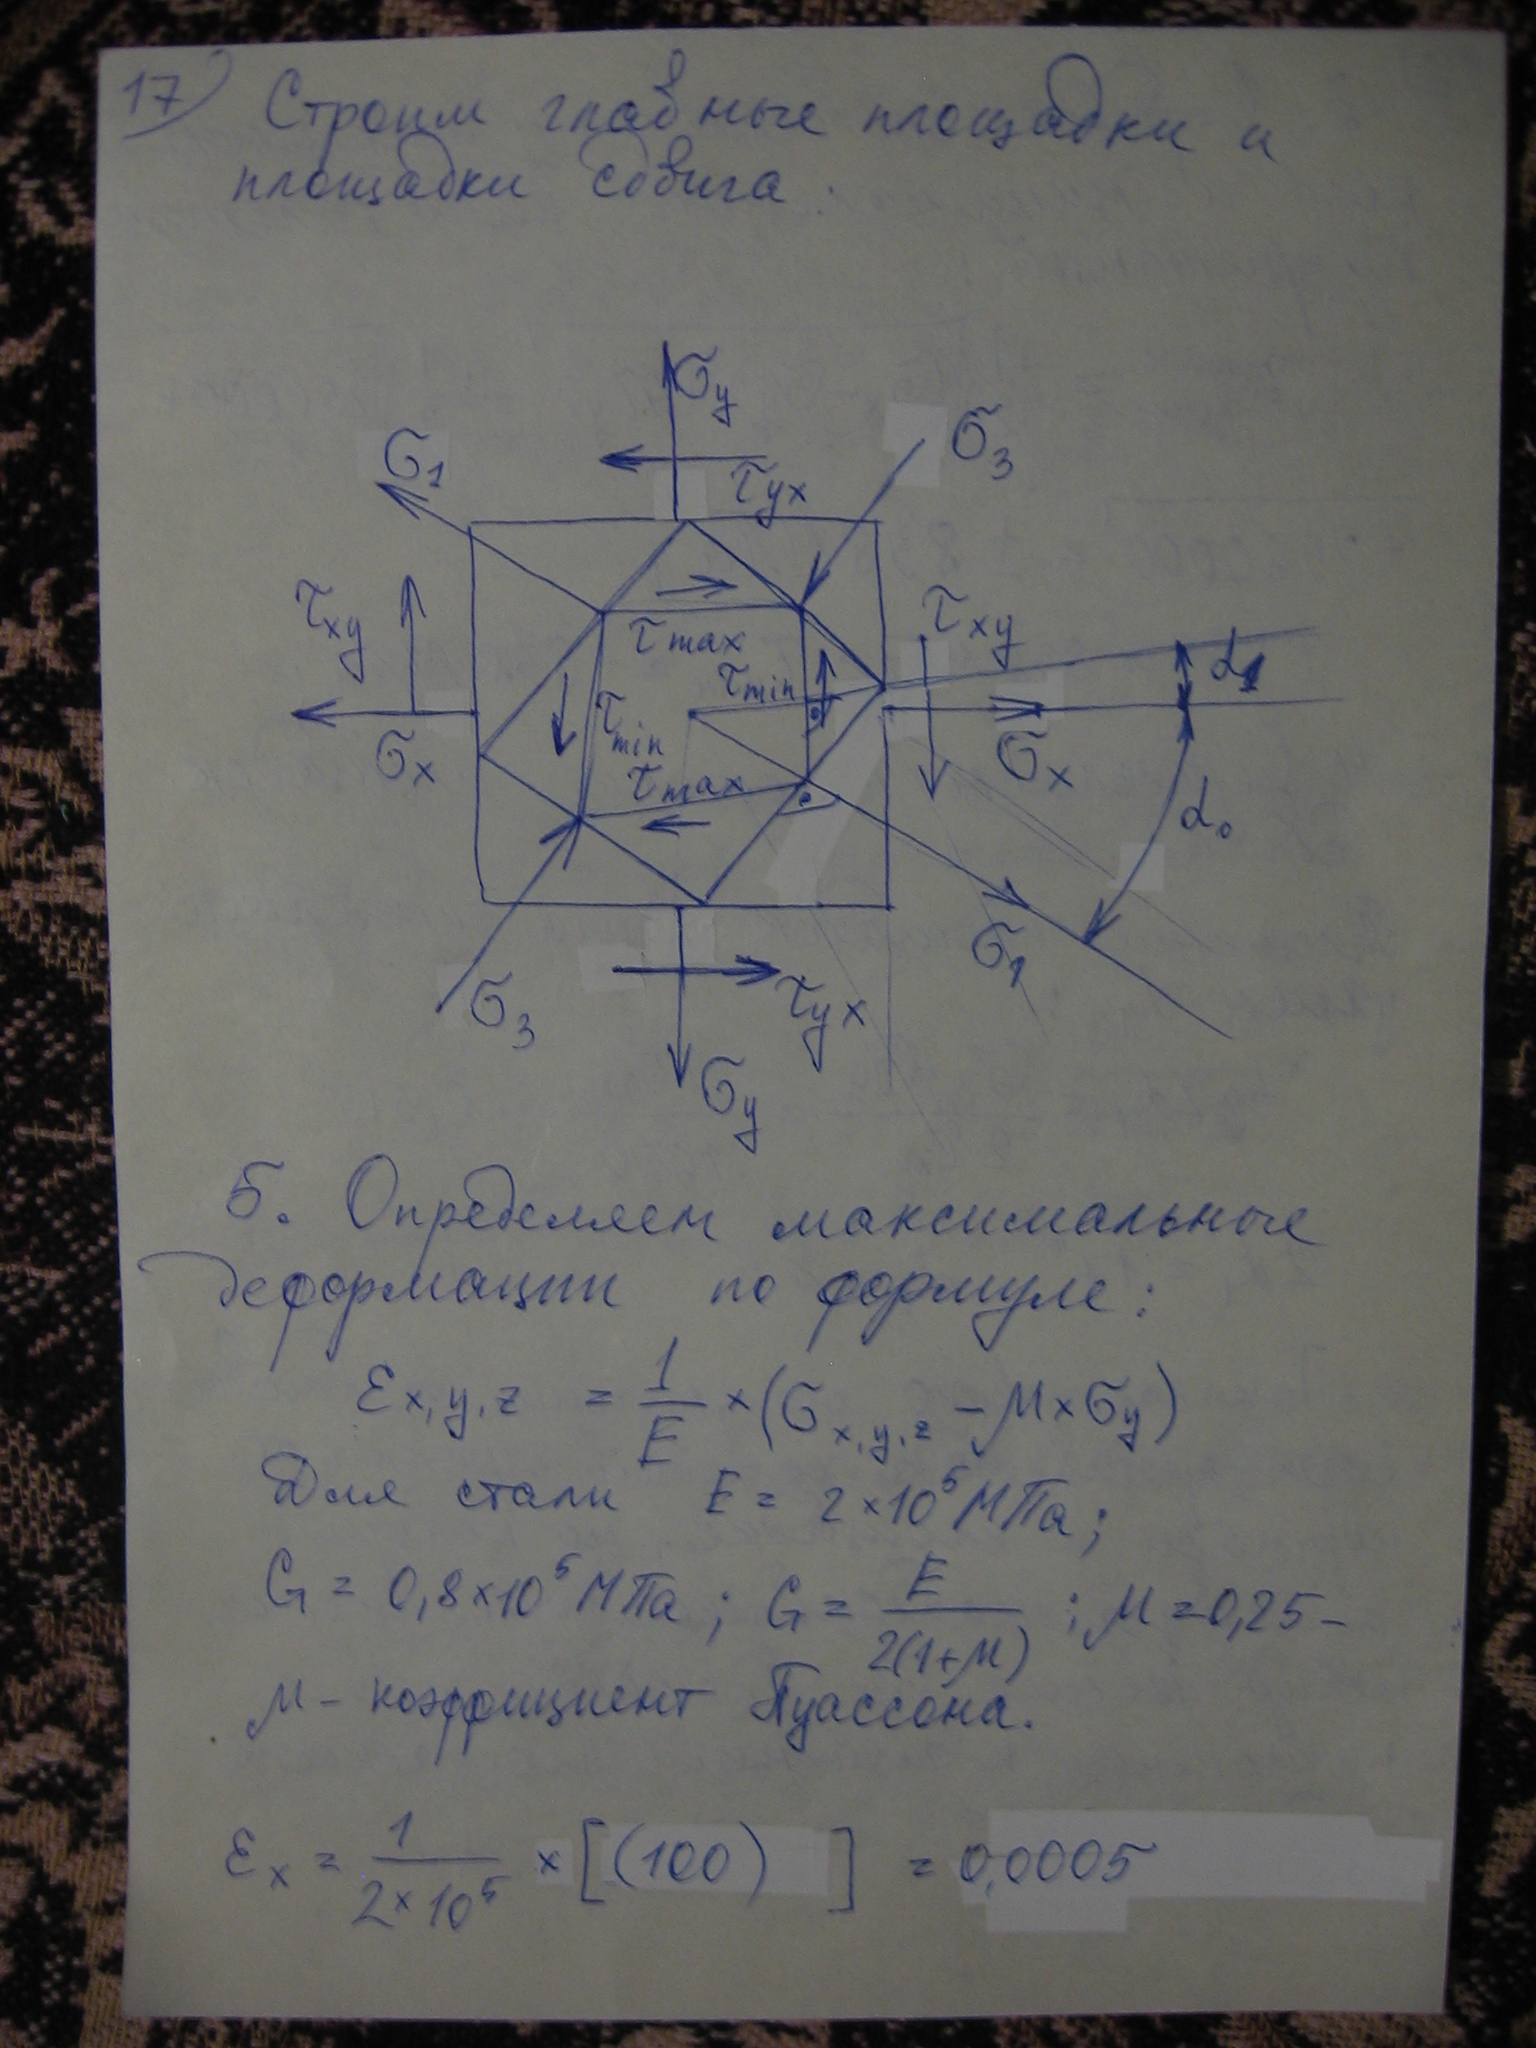 17) Строим главные площадки и
площадки сдвига:
σy
σ1
τyx
σ3
τxy
τmax
τxy
α1
τmin
σx
τmin
σx
τmax
α0
σ1
σ3
τyx
σy
5. Определяем максимальные
деформации по формуле:
εx,y,z = 1/E × (σx,y,z − μ×σy)
Для стали E = 2×10⁵ МПа;
G = 0,8×10⁵ МПа; G = E/2(1+μ); μ = 0,25 –
μ – коэффициент Пуассона.
εx = 1/2×10⁵ × [(100) ] = 0,0005